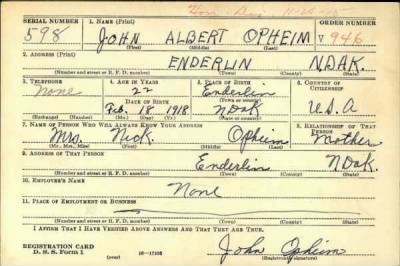 SERIAL NUMBER 1. NAME (Print) ORDER NUMBER
598 JOHN ALBERT OPHEIM V 946
(First) (Middle) (Last)
2. ADDRESS (Print)
ENDERLIN NDAK.
(Number and street or R. F. D. number) (Town) (County) (State)
3. TELEPHONE 4. AGE IN YEARS 5. PLACE OF BIRTH 6. COUNTRY OF CITIZENSHIP
None 22 Enderlin
DATE OF BIRTH (Town or county)
Feb. 18 1918 NDak U.S.A
(Exchange) (Number) (Mo.) (Day) (Yr.) (State or country)
7. NAME OF PERSON WHO WILL ALWAYS KNOW YOUR ADDRESS 8. RELATIONSHIP OF THAT PERSON
Mrs. Nick Opheim Mother
(Mr., Mrs., Miss) (First) (Middle) (Last)
9. ADDRESS OF THAT PERSON
Enderlin NDak
(Number and street or R. F. D. number) (Town) (County) (State)
10. EMPLOYER'S NAME
None
11. PLACE OF EMPLOYMENT OR BUSINESS
(Number and street or R. F. D. number) (Town) (County) (State)
I AFFIRM THAT I HAVE VERIFIED ABOVE ANSWERS AND THAT THEY ARE TRUE.
REGISTRATION CARD
D. S. S. Form 1 (over) John Opheim
(Registrant's signature)